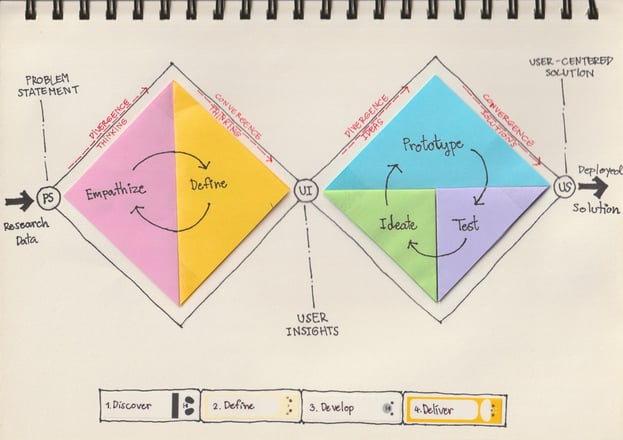 PROBLEM
STATEMENT
DIVERGENCE
THINKING
CONVERGENCE
THINKING
DIVERGENCE
IDEAS
CONVERGENCE
SOLUTIONS
USER-CENTERED
SOLUTION
PS
Research
Data
Empathize
Define
UI
USER
INSIGHTS
Prototype
Ideate
Test
US
Deployed
Solution
1.Discover
2. Define
3. Develop
4.Deliver